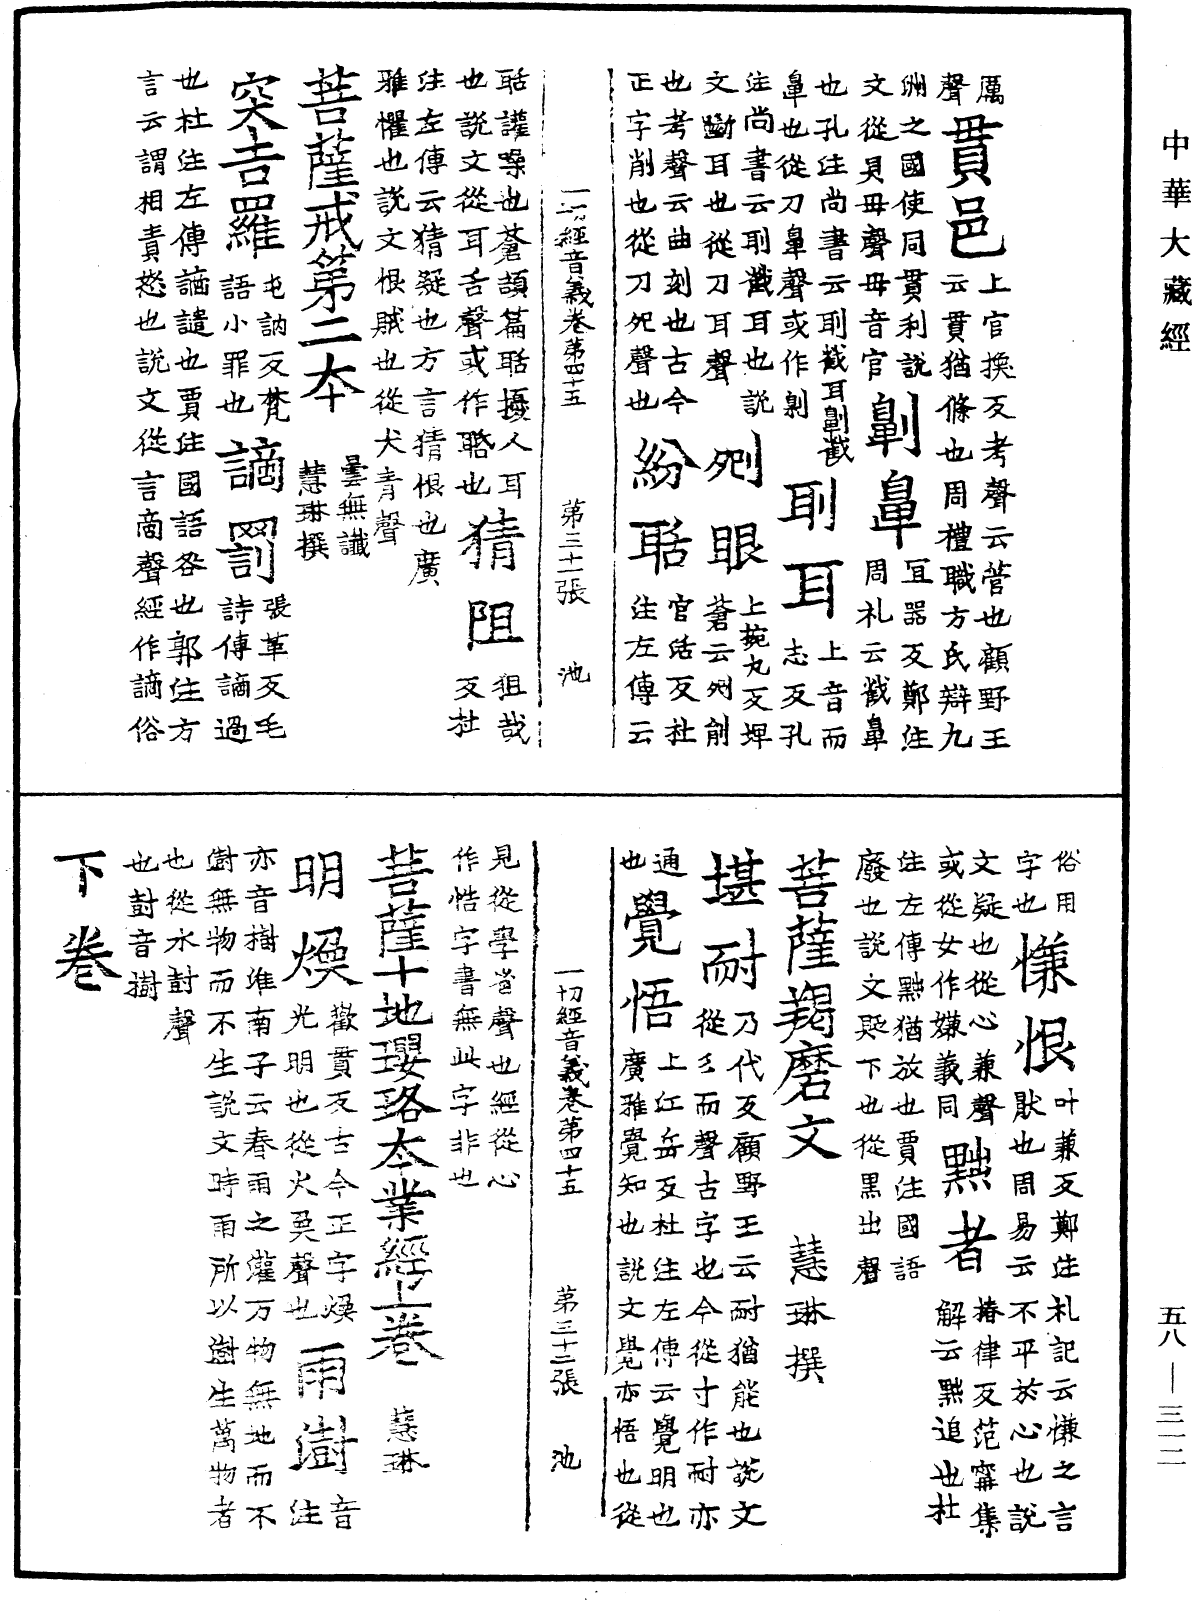 中華大藏經
厲聲
貫邑
上官換反考聲云管也顧野王
云貫猶條也周禮職方氏辯九
洲之國使同貫利說
文從貝毌聲毌音官
劓鼻
冝器反鄭注
周礼云截鼻
也孔注尚書云刵截耳劓截
鼻也從刀鼻聲或作劓
刵耳
上音而
志反孔
注尚書云刵截耳也說
文斷耳也從刀耳聲
剜眼
上捥丸反埤
蒼云剜削
也考聲云曲刻也古今
正字削也從刀夗聲也
紛聒
官活反杜
注左傳云
一切經音義卷第四十五 第三十一張 池
聒讙喿也蒼頡篇聒擾人耳
也說文從耳舌聲或作聒也
猜阻
狙哉
反杜
注左傳云猜疑也方言猜恨也廣
雅懼也說文恨賊也從犬青聲
菩薩戒第二本 曇無讖 慧琳撰
突吉羅
屯訥反梵
語小罪也
謫罰
張革反毛
詩傳謫過
也杜注左傳謫譴也賈注國語咎也郭注方
言云謂相責愆也說文從言啇聲經作謫俗
俗用
字也
慊恨
叶兼反鄭注札記云慊之言
猒也周易云不平於心也說
文疑也從心兼聲
或從女作嫌義同
黜者
椿律反范甯集
解云黜追也杜
注左傳黜猶放也賈注國語
廢也說文貶下也從黑出聲
菩薩羯磨文 慧琳撰
堪耐
乃代反顧野王云耐猶能也說文
從彡而聲古字也今從寸作耐亦
通
也
覺悟
上江岳反杜注左傳云覺明也
廣雅覺知也說文覺亦悟也從
一切經音義卷第四十五 第三十二張 池
見從學省聲也經從心
作悎字書無此字非也
菩薩十地瓔珞本業經上卷 慧琳
明煥
歡貫反古今正字煥
光明也從火奐聲也
雨澍
音
注
亦音樹淮南子云春雨之灌万物無地而不
澍無物而不生說文時雨所以澍生萬物者
也從水尌聲
也尌音樹
下卷
五八—三一二